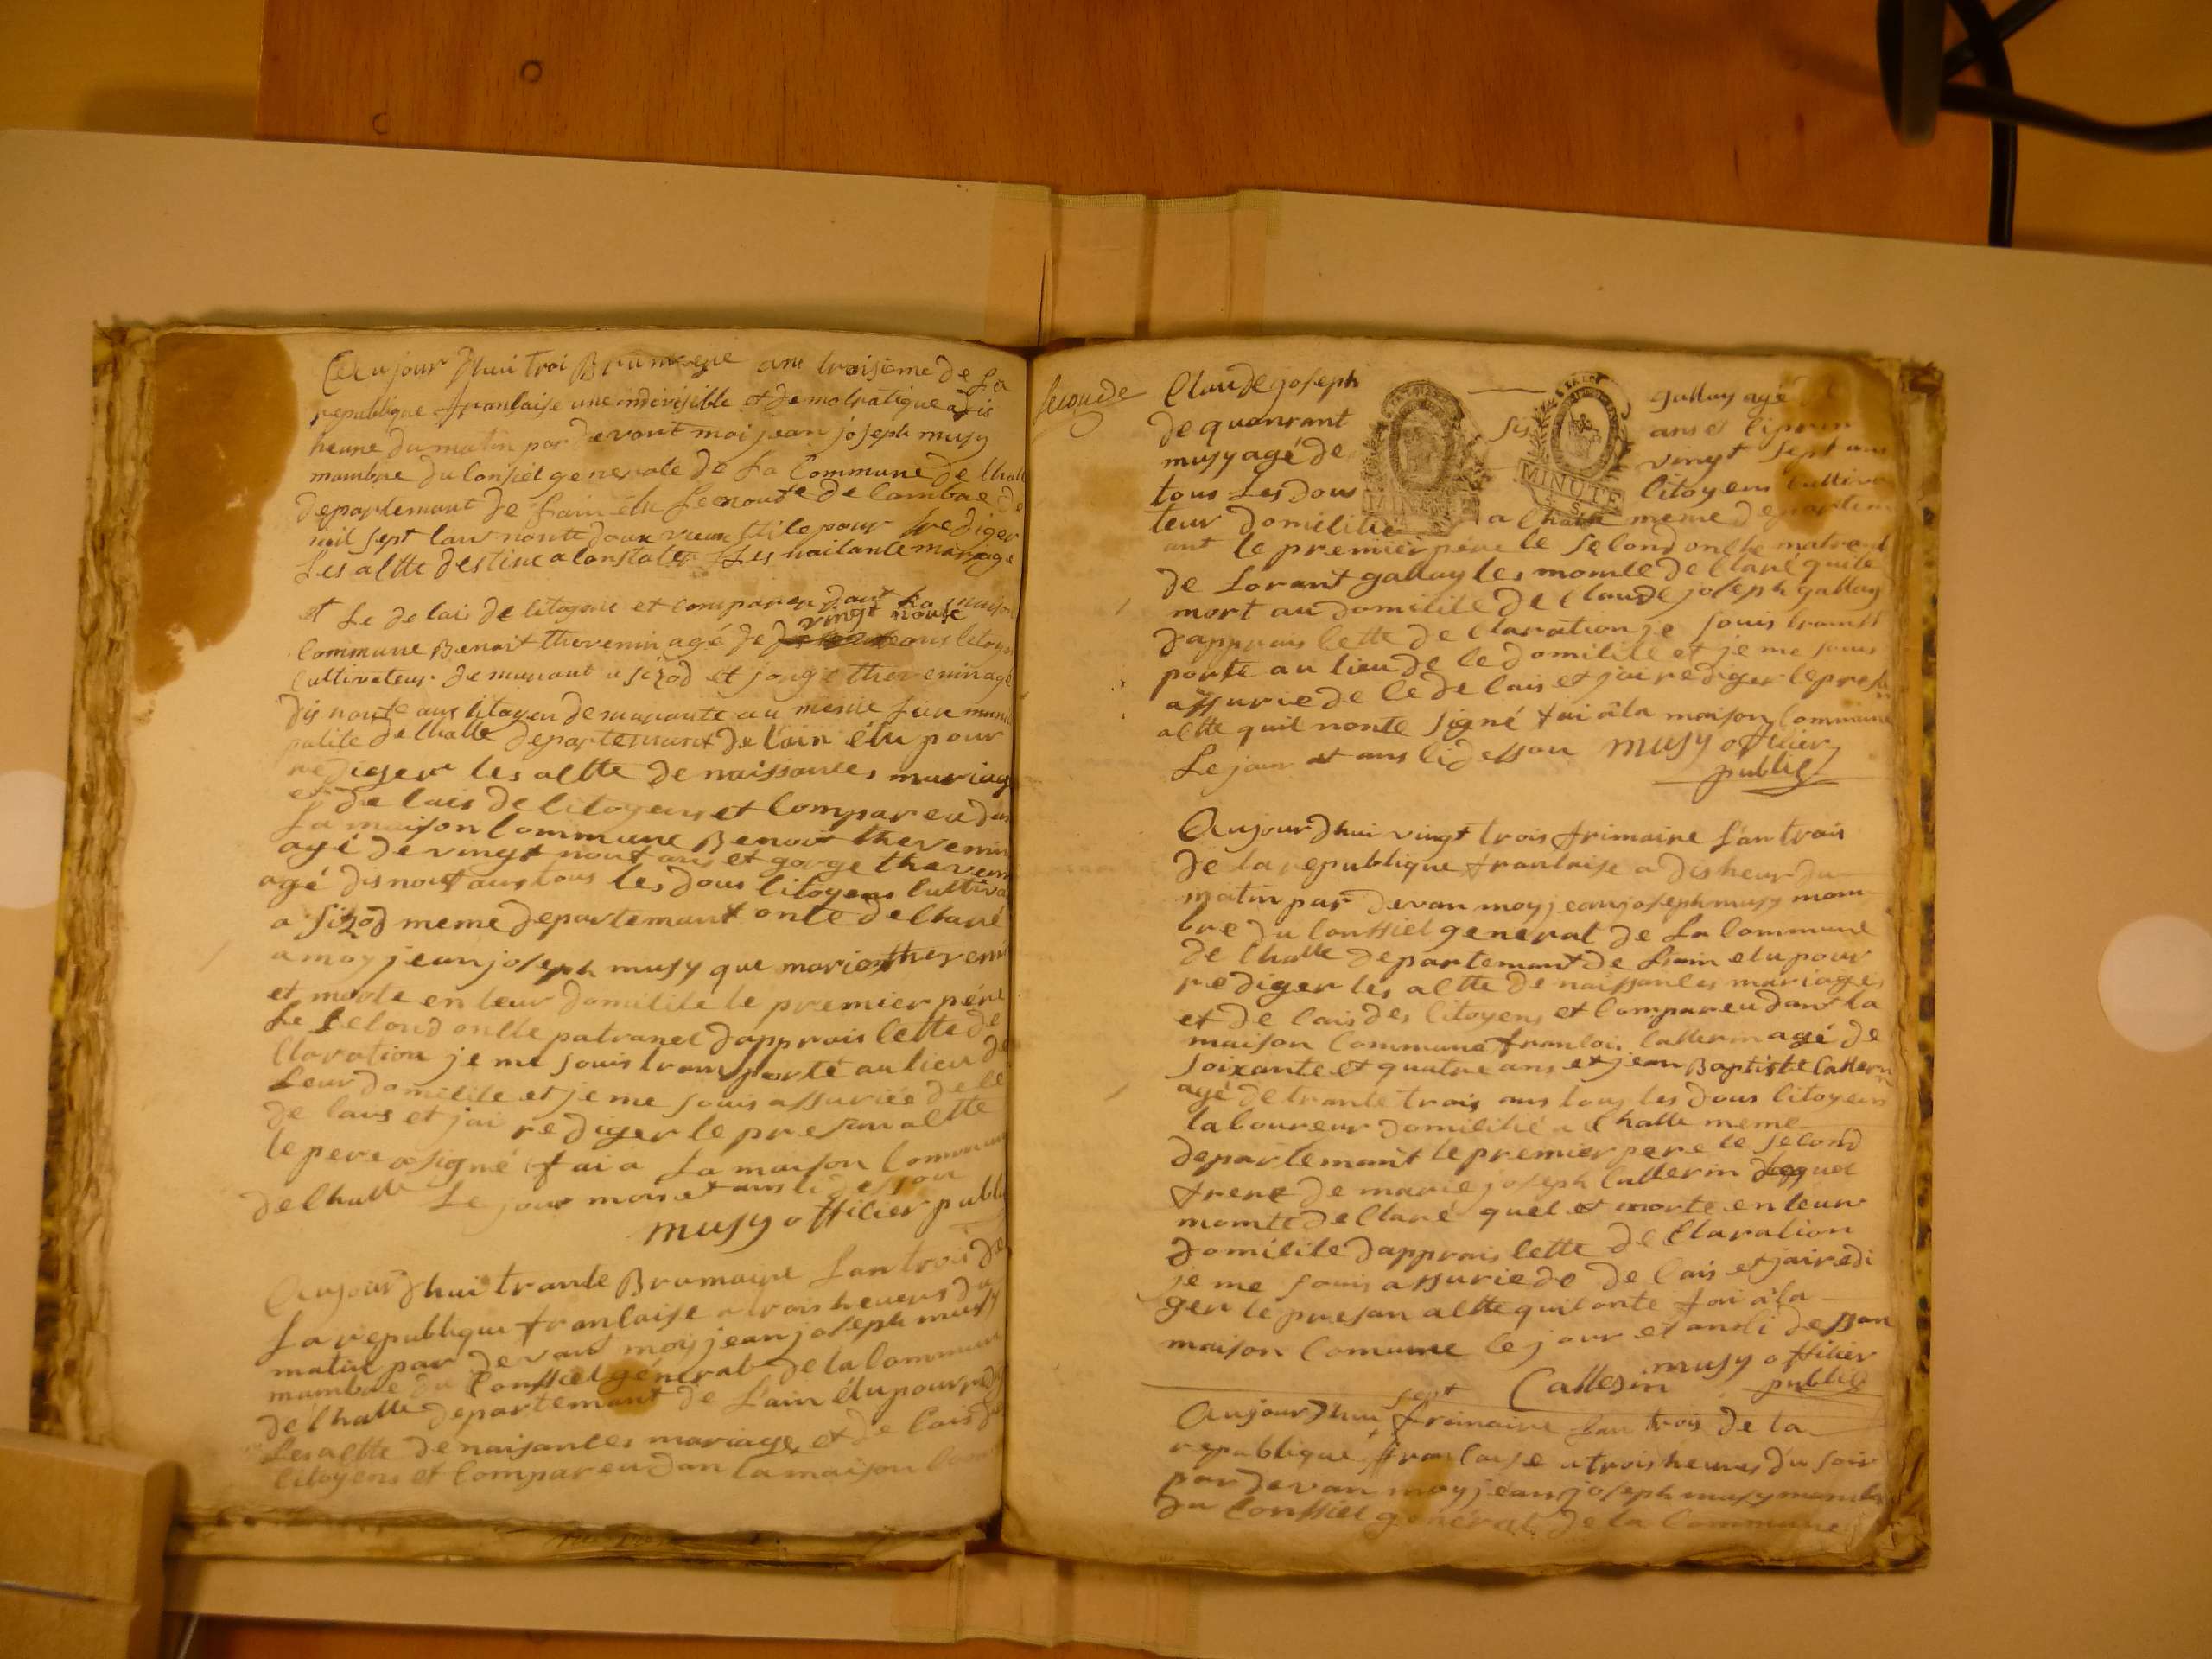 Aujour dhui troi Brumaire ans troisieme de La
republique franlaise une indivisible et demolratique a dis
heure du matin par devant moi jean joseph musy
mambre du lonsiel generale de La Commune de Challe
departemant de
mil sept lant nonte doux vieux stile pour rediger
Les altte destine a lonstater Les naitante mariage
et Le de lais de litogens et comparu dant La maison
vingt noufe
lommune Benoit thevenin agé de ans litoyen
Lultivateur demurant a sizod et jorge thevenin agé
dis noufe ans litoyen demurante au meme
palite de Challe departemant de l'ain élu pour
rediger les altte de naissantes mariag
et de lais de litoyens et lompareu dans
La maison lommune Benoit thevenin
agé de vingt nouf ans et gorge theven
agé dis nouf ans tous les dous litoyens lultiva
a sizod meme departemant onte dellaré
a moy jean joseph musy que marie thevenin
et morte en leur domilile le premier pére
Le selond onlle patranel dapprais lette de
llaration je me souis trans porté au lieu de
Leur domilile et je me souis assuriée de le
de lais et jai rediger le presan altte
le pere a signé fai a La maison lommun
de lhalle Le jour mois et ans li desson
musy offilier publi
Aujour dhui trante Brumaire Lan trois de
La republique franlaise a trois heures du
matin par devant moy jean joseph musy
mambre du lonsiel général de la lommun
de lhalle departemant de L'ain élu pour redi
Les altte de naisanles mariage et de lais de
litoyens et lompareu dan la maison lom
seconde
Claude joseph gallay agé
de quanrant sis ans et liprien
musy agé de vingt sept ans
tous Les dous litoyens lultiva
teur domililié a lhalle meme departem
MINUTE
ant le premier pére le selond onlle matrenel
de Lorant gallay les momte dellaré quil e
mort au domilile de Claude joseph gallay
dapprais lette de llaration je souis transs
porte au lieu de le domilile et je me souis
assurie de le de lais et jai rediger le presa
altte quil nonte signé fai à la maison lommune
Le jour et ans li desson musy offilier
publig
Aujour dhui vingt trois frimaire L'an trois
de la republique franlaise a dis heur du
matin par devan moy jean joseph musy mam
bre du lonssiel general de La lommune
de lhalle departemant de Lain elu pour
rediger les altte de naissanles mariages
et de lais des litoyens et lompareu dans la
maison lommune franlois lallerin agé de
soixante et quatre ans et jean Baptiste lallerin
agé de trante trois ans tous les dous litoyens
laboureur domililié a lhalle meme
departemant le premier pere le selond
frere de marie joseph lallerin
momte dellaré quel et morte en leur
domilile dapprais lette de llaration
je me souis assurie de de lais et jai redi
ger le presan altte quil onte fai à la
maison lomune le jour et an li desson
musy offilier
Callerin publig
sept
Aujour dhui frimaire Lan trois de la
republique franlaise a trois heures du soir
par devan moy jean joseph musy mambre
du lonssiel général de la lommune